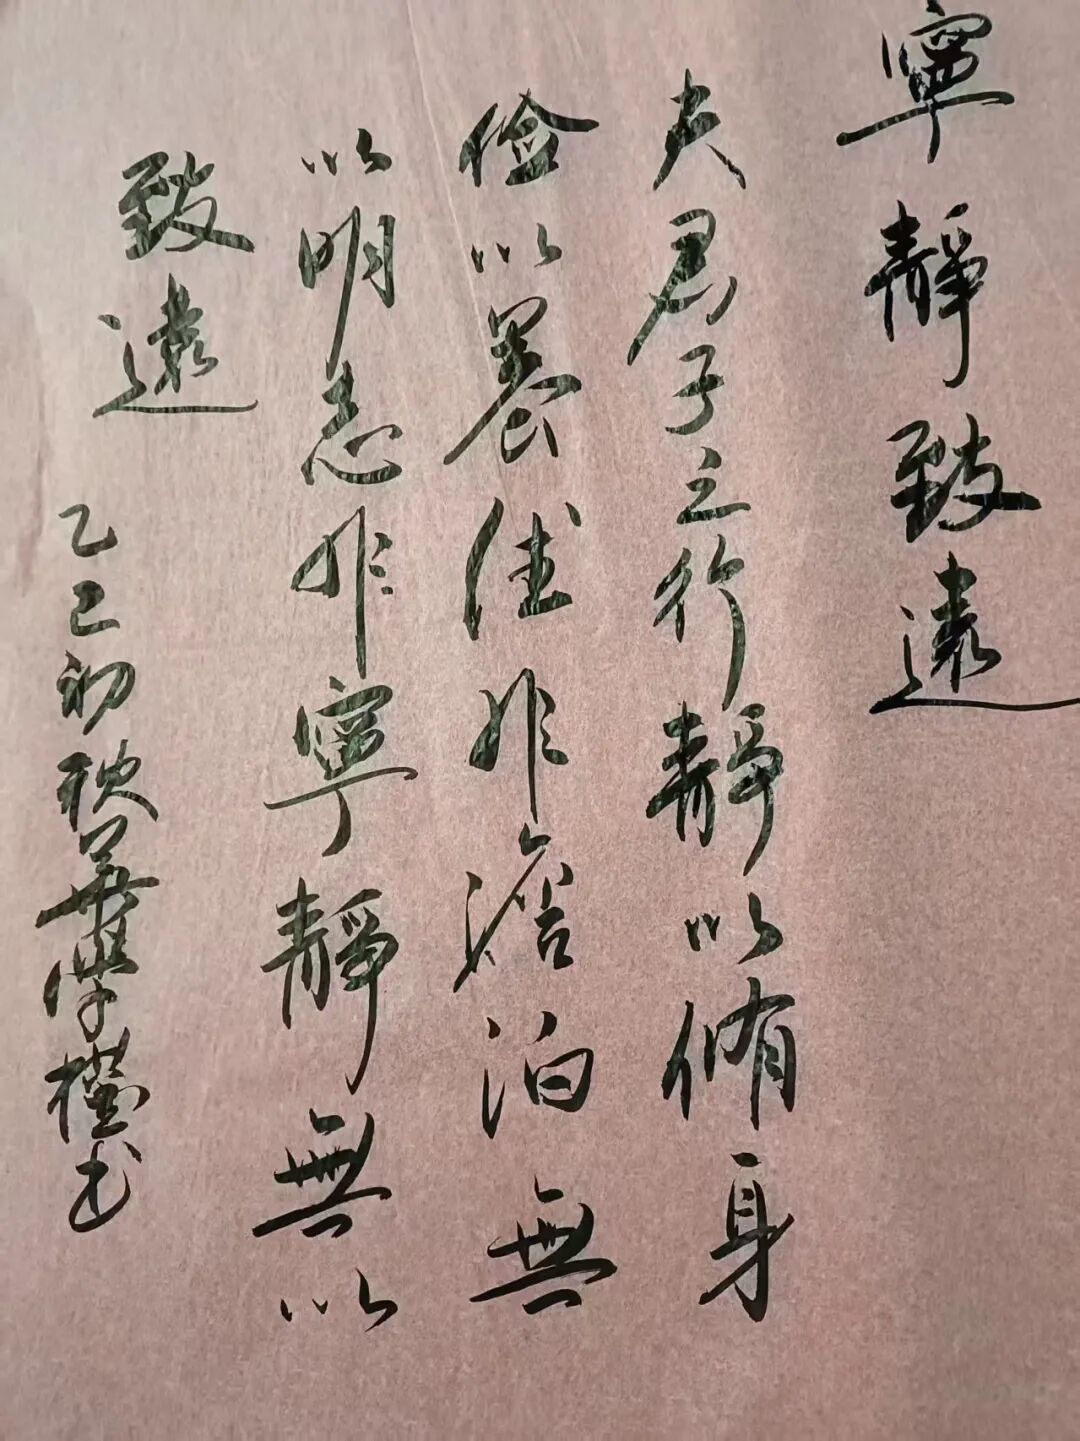 寧靜致遠
夫君子之行靜以脩身
儉以養德非澹泊無
以明志非寧靜無以
致遠
乙巳初秋華學權書